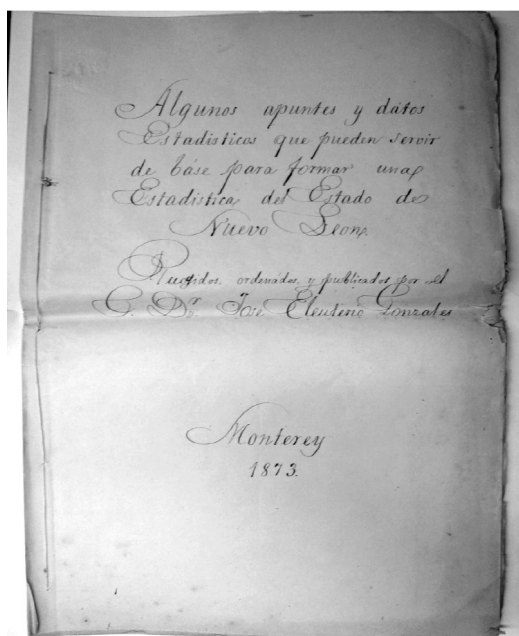 Algunos apuntes y datos
Estadisticos que pueden servir
de báse para formar una
Estadistica del Estado de
Nuevo Leon.
Reunidos, ordenados, y publicados por el
C. Dr. José Eleuterio Gonzales
Monterey
1873.